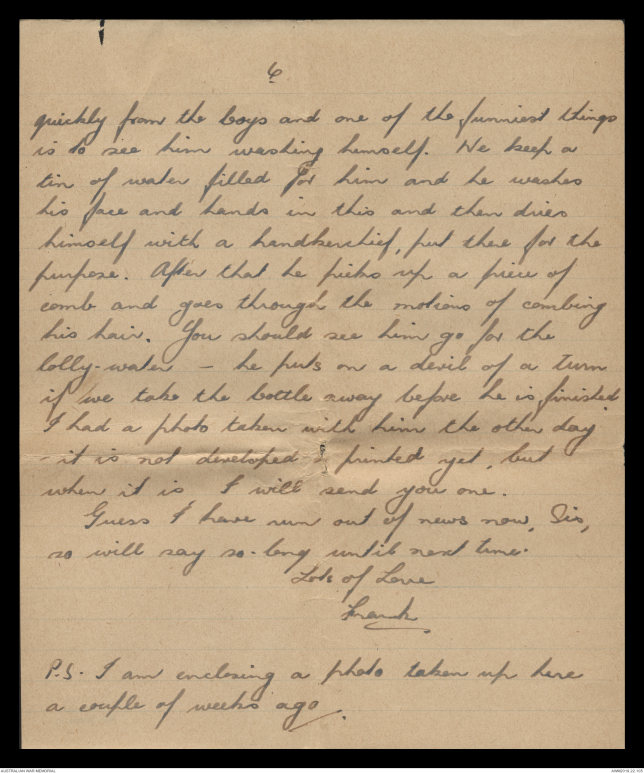 6
quickly from the boys and one of the funniest things
is to see him washing himself. We keep a
tin of water filled for him and he washes
his face and hands in this and then dries
himself with a handkerchief, put there for the
purpose. After that he picks up a piece of
comb and goes through the motions of combing
his hair. You should see him go for the
lolly-water – he puts on a devil of a turn
if we take the bottle away before he is finished.
I had a photo taken with him the other day
– it is not developed & printed yet, but
when it is I will send you one.
Guess I have run out of news now, Sis,
so will say so-long until next time.
Lots of Love
Frank
P.S. I am enclosing a photo taken up here
a couple of weeks ago.
AUSTRALIAN WAR MEMORIAL